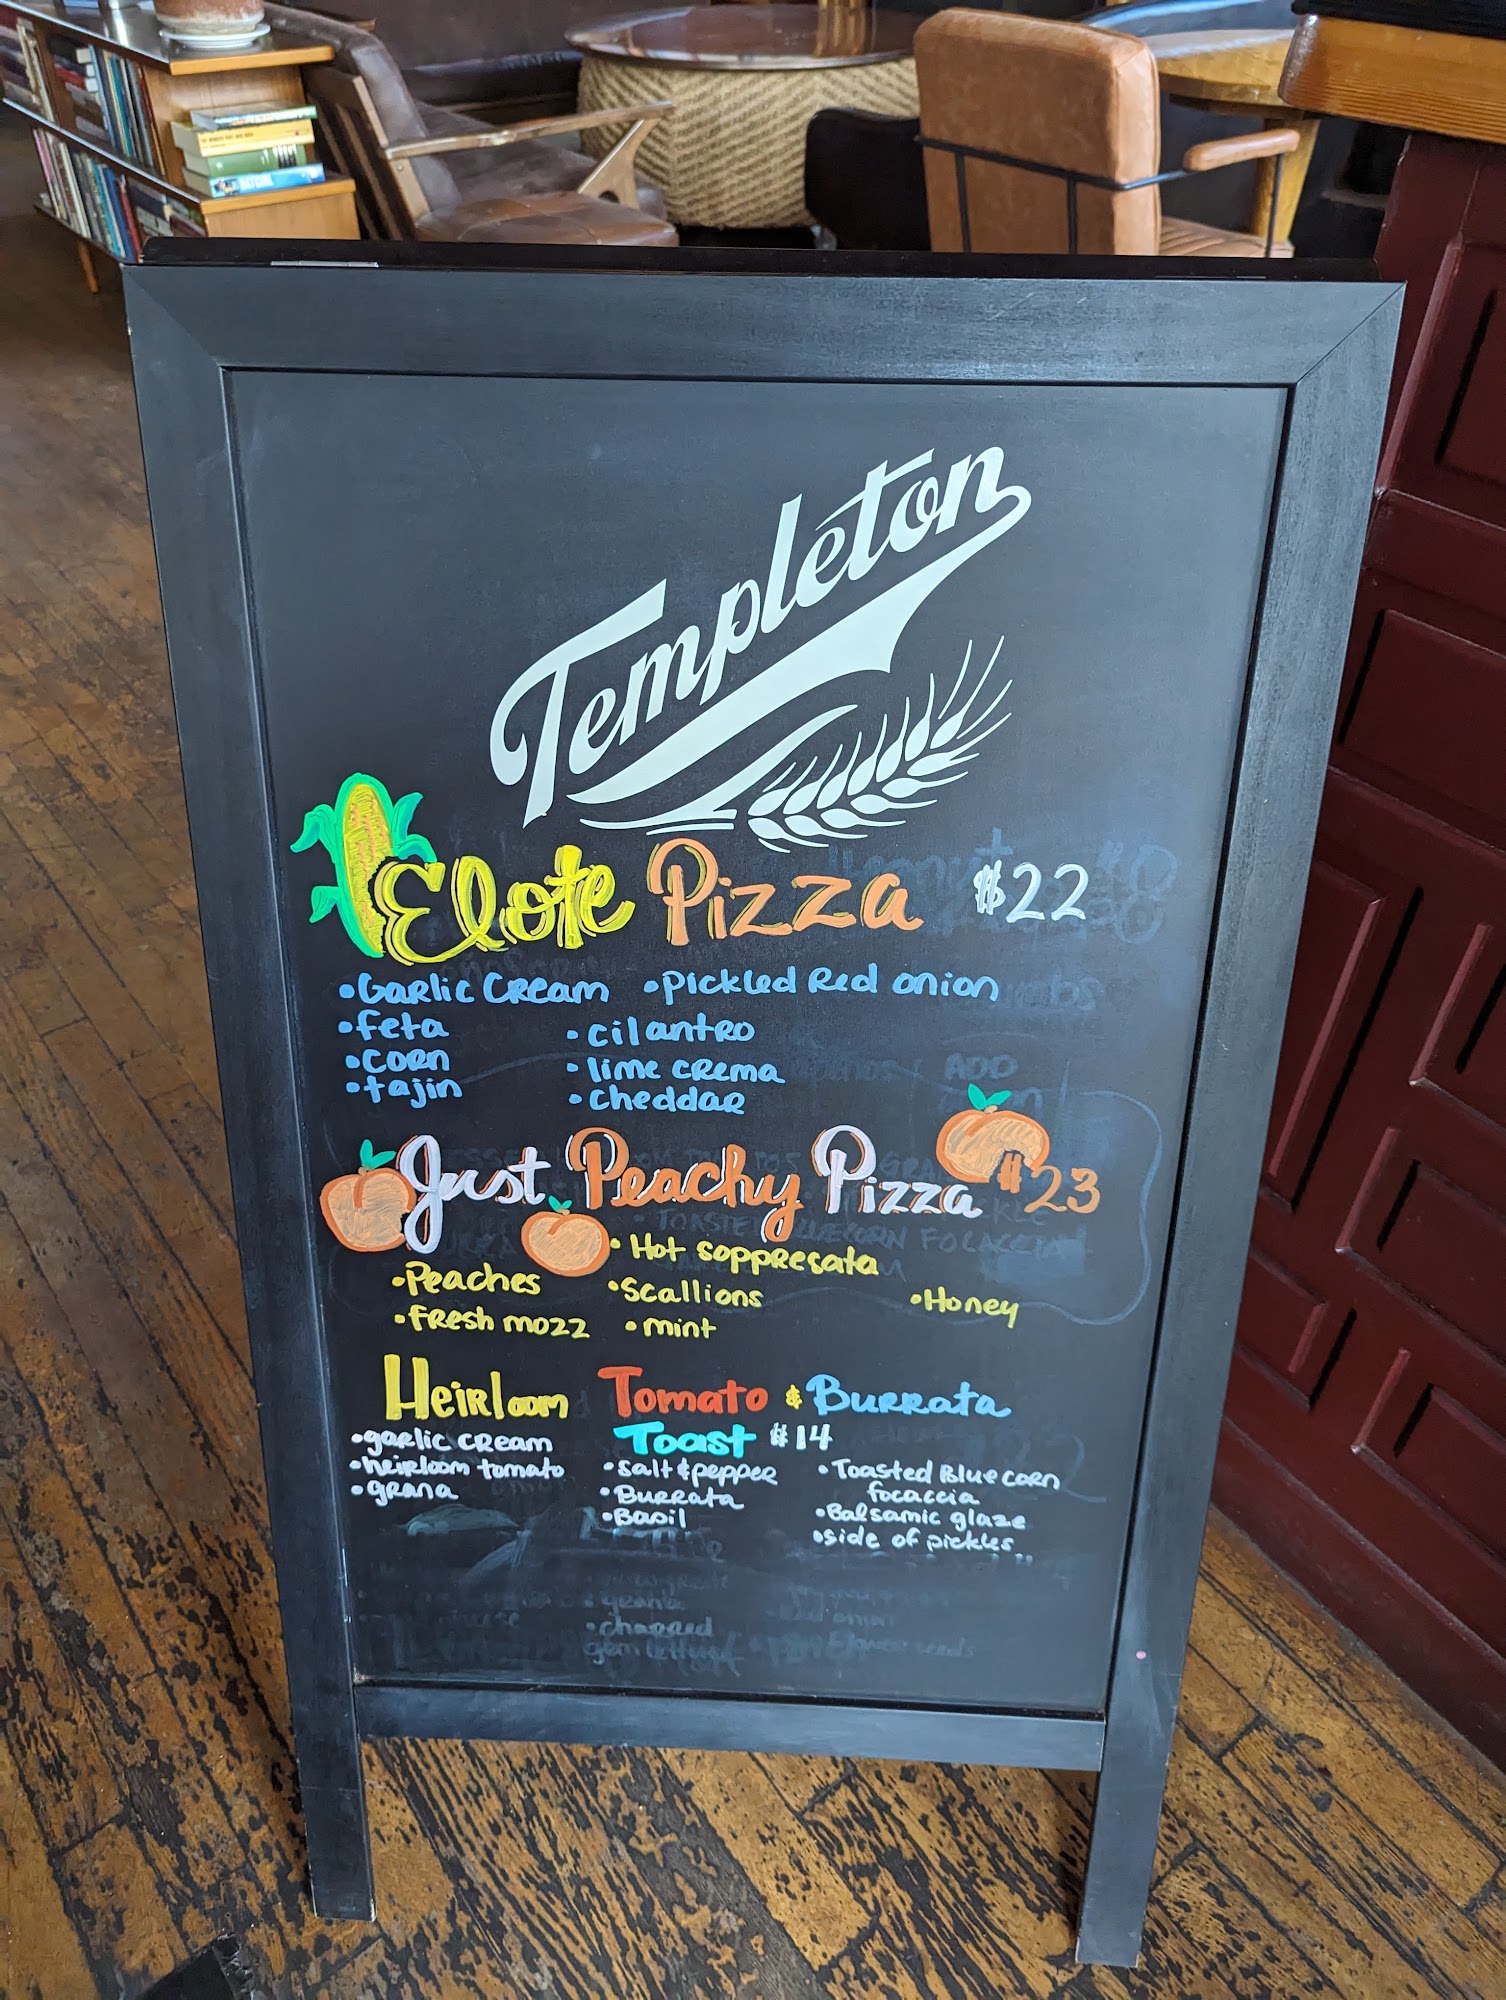 Templeton
Elote Pizza $22
•Garlic Cream •Pickled Red onion
•feta •cilantro
•corn •lime crema
•tajin •cheddar
Just Peachy Pizza $23
•Hot soppresata
•Peaches •Scallions •Honey
•fresh mozz •mint
Heirloom Tomato & Burrata
Toast $14
•garlic cream
•heirloom tomato •salt & pepper •Toasted Blue corn
•grana •Burrata focaccia
•Basil •Balsamic glaze
•side of pickles